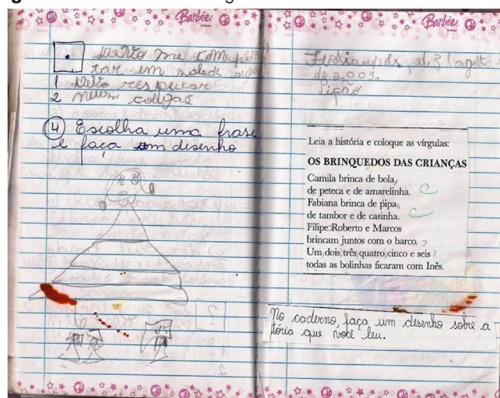 Barbie
Devo me
em
1 Devo respeitar
2 meus colegas
4 Escolha uma frase
e faça um desenho
Barbie
de 2002
Leia a história e coloque as vírgulas:
OS BRINQUEDOS DAS CRIANÇAS
Camila brinca de bola,
de peteca e de amarelinha.
Fabiana brinca de pipa,
de tambor e de casinha.
Filipe,Roberto e Marcos
brincam juntos com o barco.
Um,dois,três,quatro,cinco e seis
todas as bolinhas ficaram com Inês.
No caderno, faça um desenho sobre a
tória que você leu.